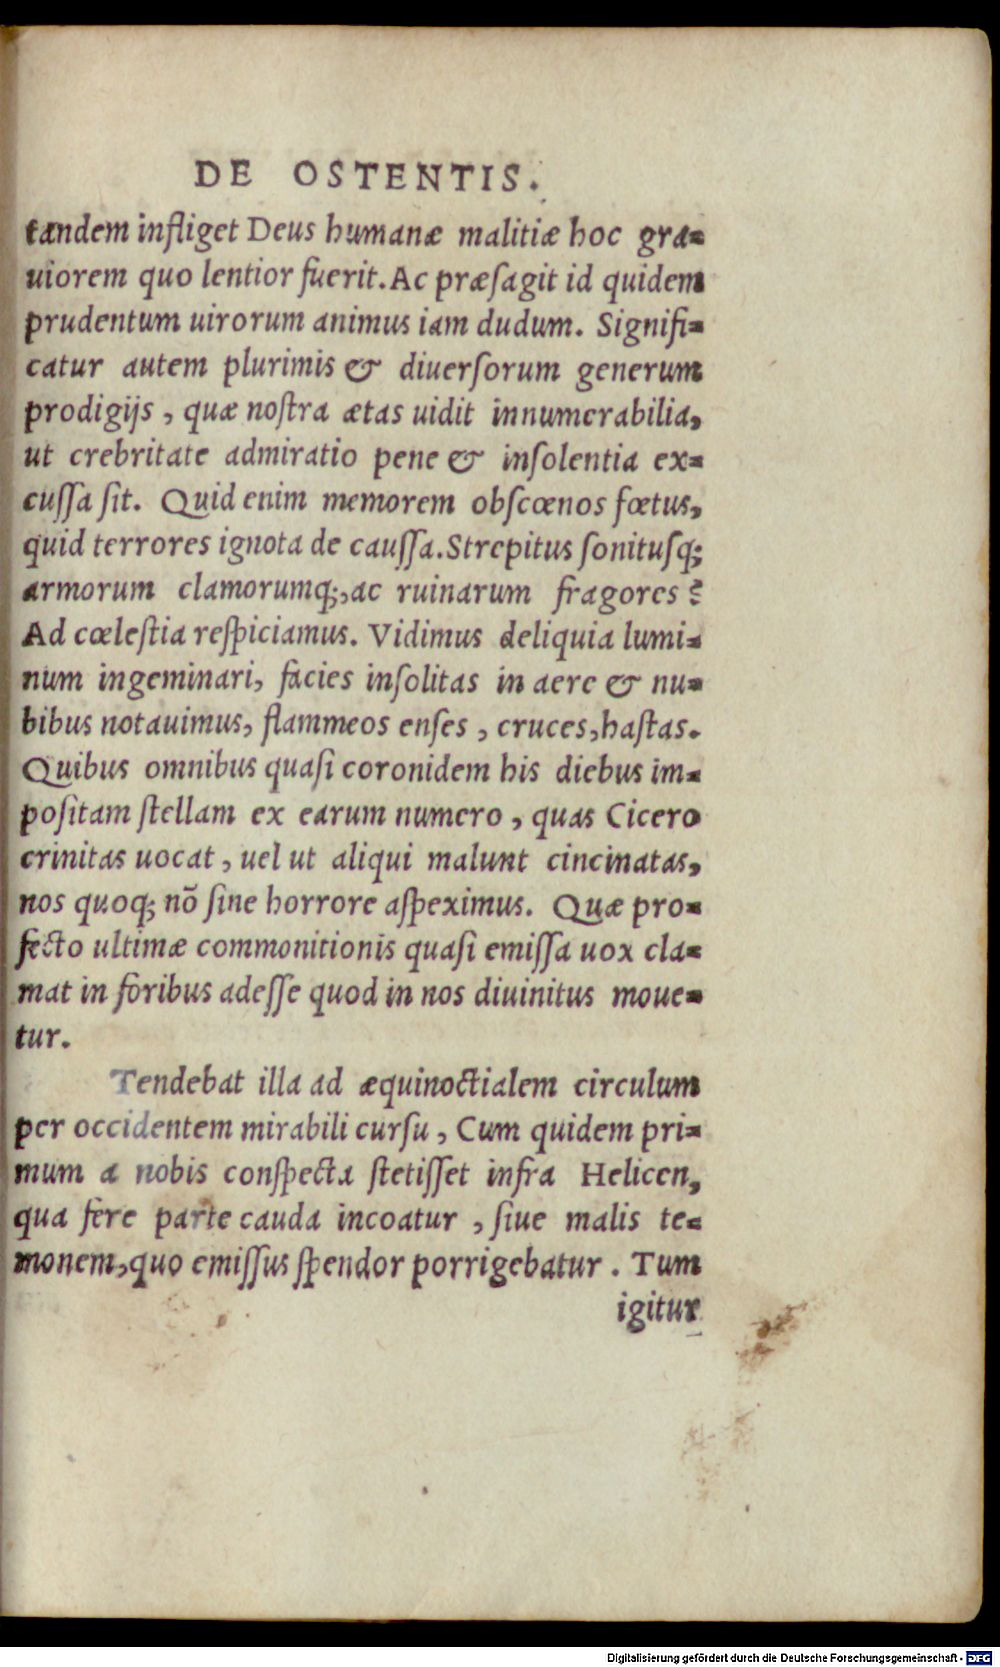 DE OSTENTIS.
tandem infliget Deus humanæ malitiæ hoc gra-
uiorem quo lentior fuerit. Ac præſagit id quidem
prudentum uirorum animus iam dudum. Signifi-
catur autem plurimis & diuerſorum generum
prodigijs, quæ noſtra ætas uidit innumerabilia,
ut crebritate admiratio pene & inſolentia ex-
cuſſa ſit. Quid enim memorem obſcœnos fœtus,
quid terrores ignota de cauſſa. Strepitus ſonituſq;
armorum clamorumq;, ac ruinarum fragores?
Ad cœleſtia reſpiciamus. Vidimus deliquia lumi-
num ingeminari, facies inſolitas in aere & nu-
bibus notauimus, flammeos enſes, cruces, haſtas.
Quibus omnibus quaſi coronidem his diebus im-
poſitam ſtellam ex earum numero, quas Cicero
crinitas uocat, uel ut aliqui malunt cincinatas,
nos quoq; nõ ſine horrore aſpeximus. Quæ pro-
fecto ultimæ commonitionis quaſi emiſſa uox cla-
mat in foribus adeſſe quod in nos diuinitus moue-
tur.
Tendebat illa ad æquinoctialem circulum
per occidentem mirabili curſu, Cum quidem pri-
mum a nobis conſpecta ſtetiſſet infra Helicen,
qua fere parte cauda incoatur, ſiue malis te-
monem, quo emiſſus ſpendor porrigebatur. Tum
igitur
Digitalisierung gefördert durch die Deutsche Forschungsgemeinschaft - DFG